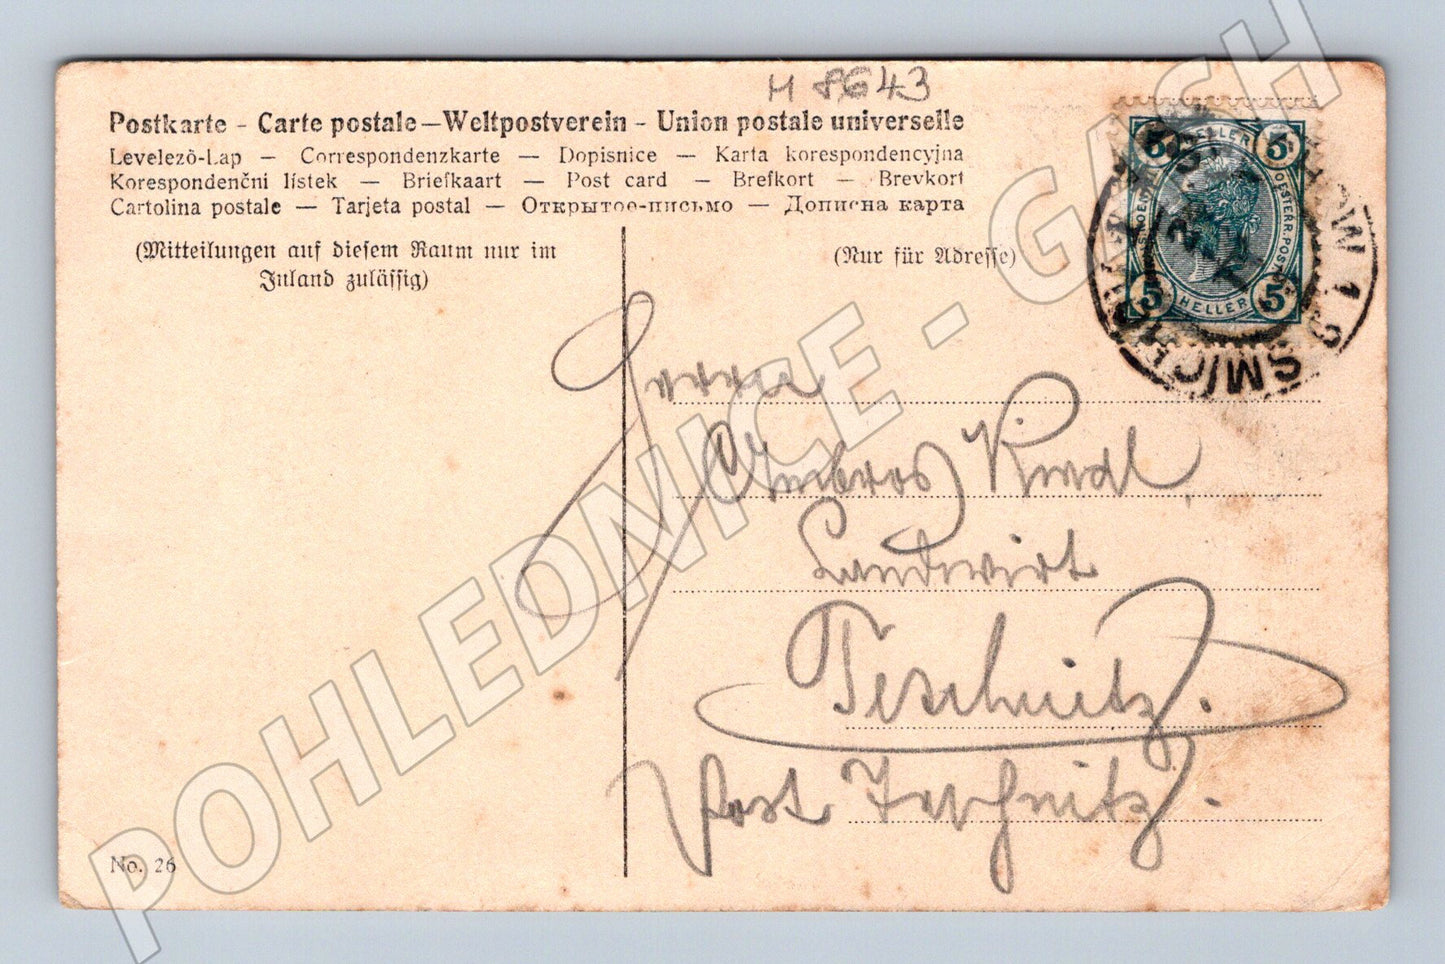 H 8643
Postkarte - Carte postale—Weltpostverein - Union postale universelle
Levelező-Lap — Correspondenzkarte — Dopisnice — Karta korespondencyjna
Korespondenčni listek — Briefkaart — Post card — Brefkort — Brevkort
Cartolina postale — Tarjeta postal — Открытое-письмо — Дописна карта
(Mitteilungen auf diesem Raum nur im
Inland zulässig)
(Nur für Adresse)
5 HELLER 5
OESTERR. POST
5 HELLER 5
SMICHOW 1
Herrn
Ambros Kindl
Landwirt
Teschnitz.
Post
No. 26
POHLEDNICE - GASH